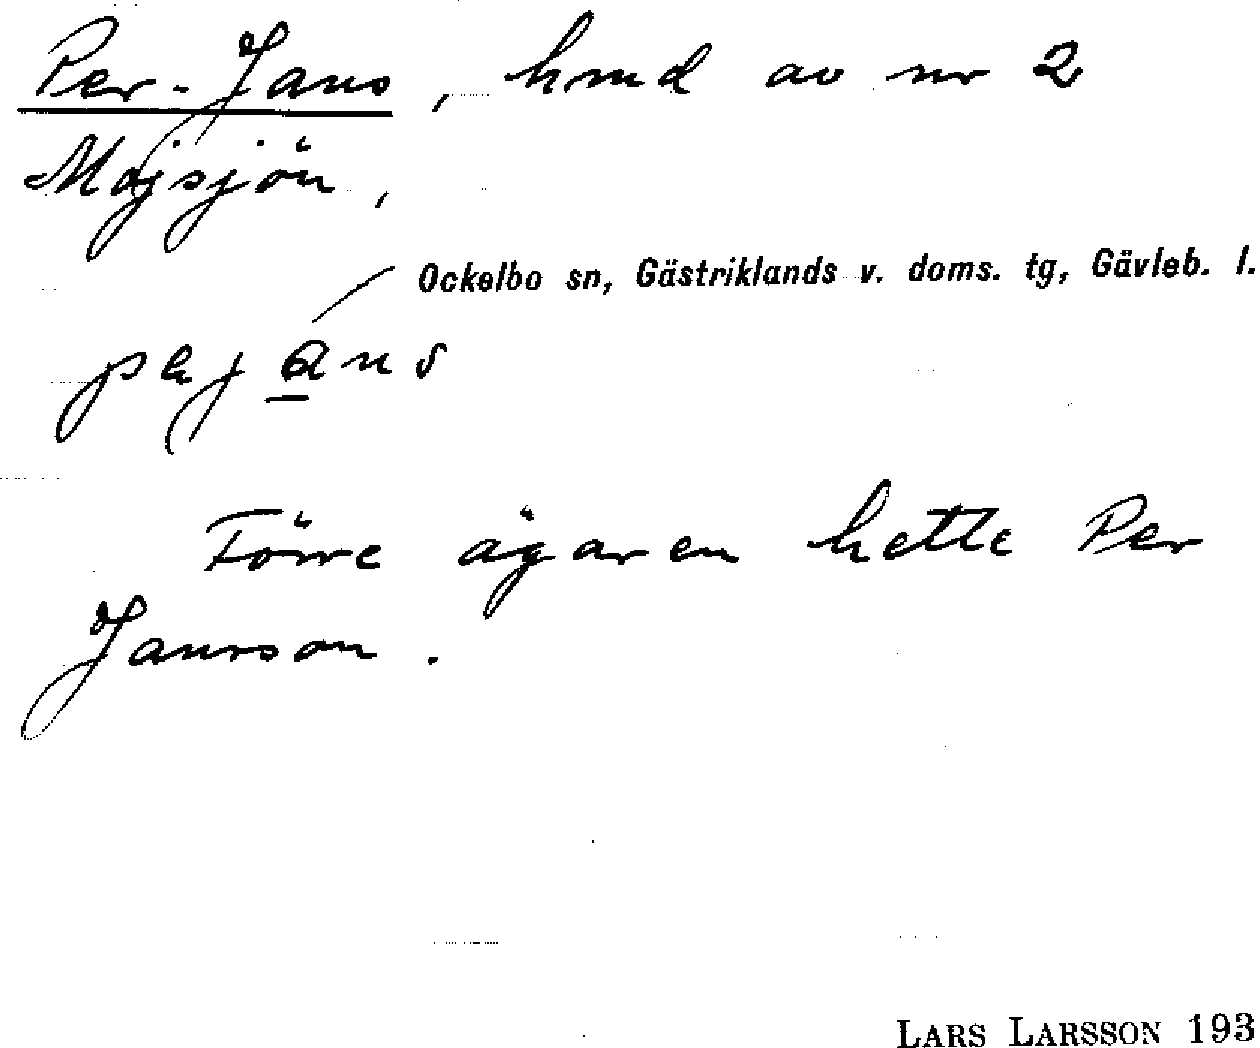 Per-Jans, hmd av nr 2
Mojsjön,
Ockelbo sn, Gästriklands v. doms. tg, Gävleb. l.
pejans
Förre ägaren hette Per
Jansson.
LARS LARSSON 193